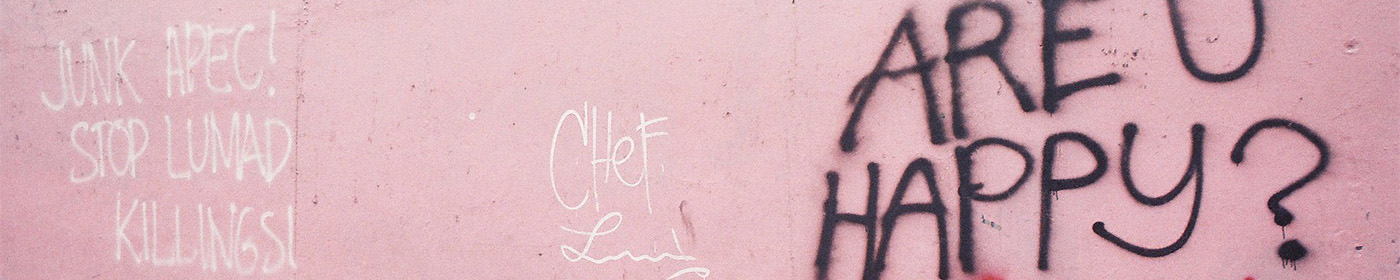 JUNK APEC!
STOP LUMAD
KILLINGS!
CHeF
ARE U
HAPPY?